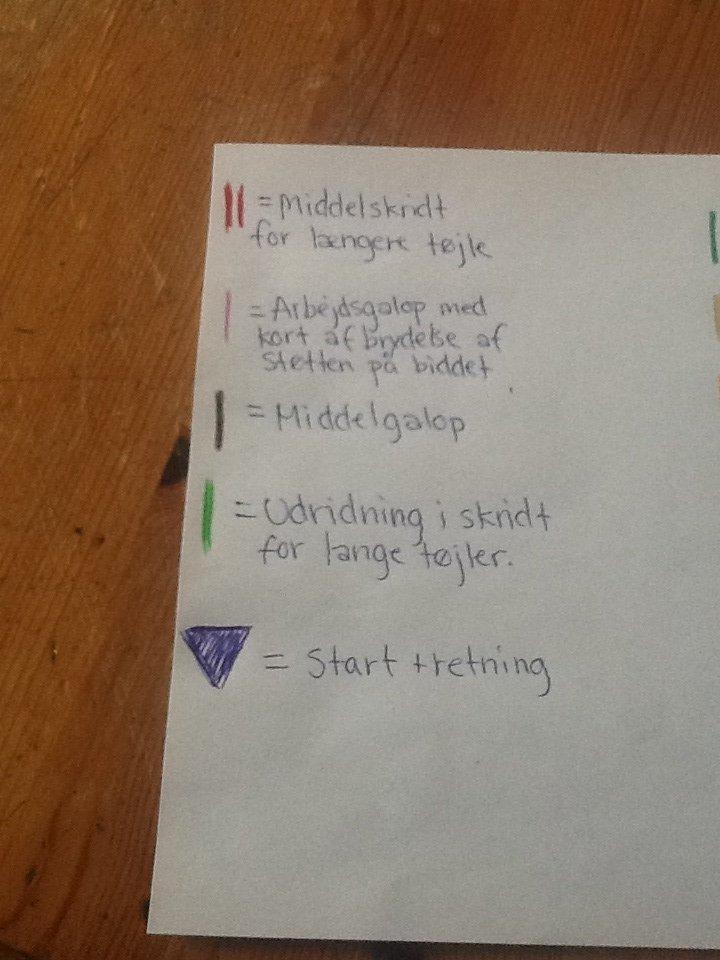 = Middelskridt
for længere tøjle
= Arbejdsgalop med
kort afbrydelse af
støtten på biddet
= Middelgalop
= Udridning i skridt
for lange tøjler.
= Start + retning